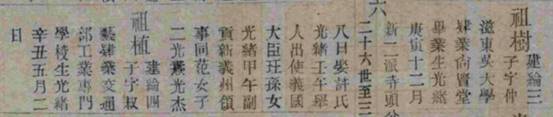 祖樹 建綸三
子字仲
滋東吳大學
肄業尚賢堂
畢業生光緒
庚寅十二月
新二派寺頭分
六 二十六世至三
八日娶許氏
光緒壬午舉
人出使義國
大臣珏孫女
光緒甲午副
貢新義州領
事同范女子
二光燊光杰
祖植 建綸四
子字叔
蓺肄業交通
部工業專門
學校生光緒
辛丑五月二
日